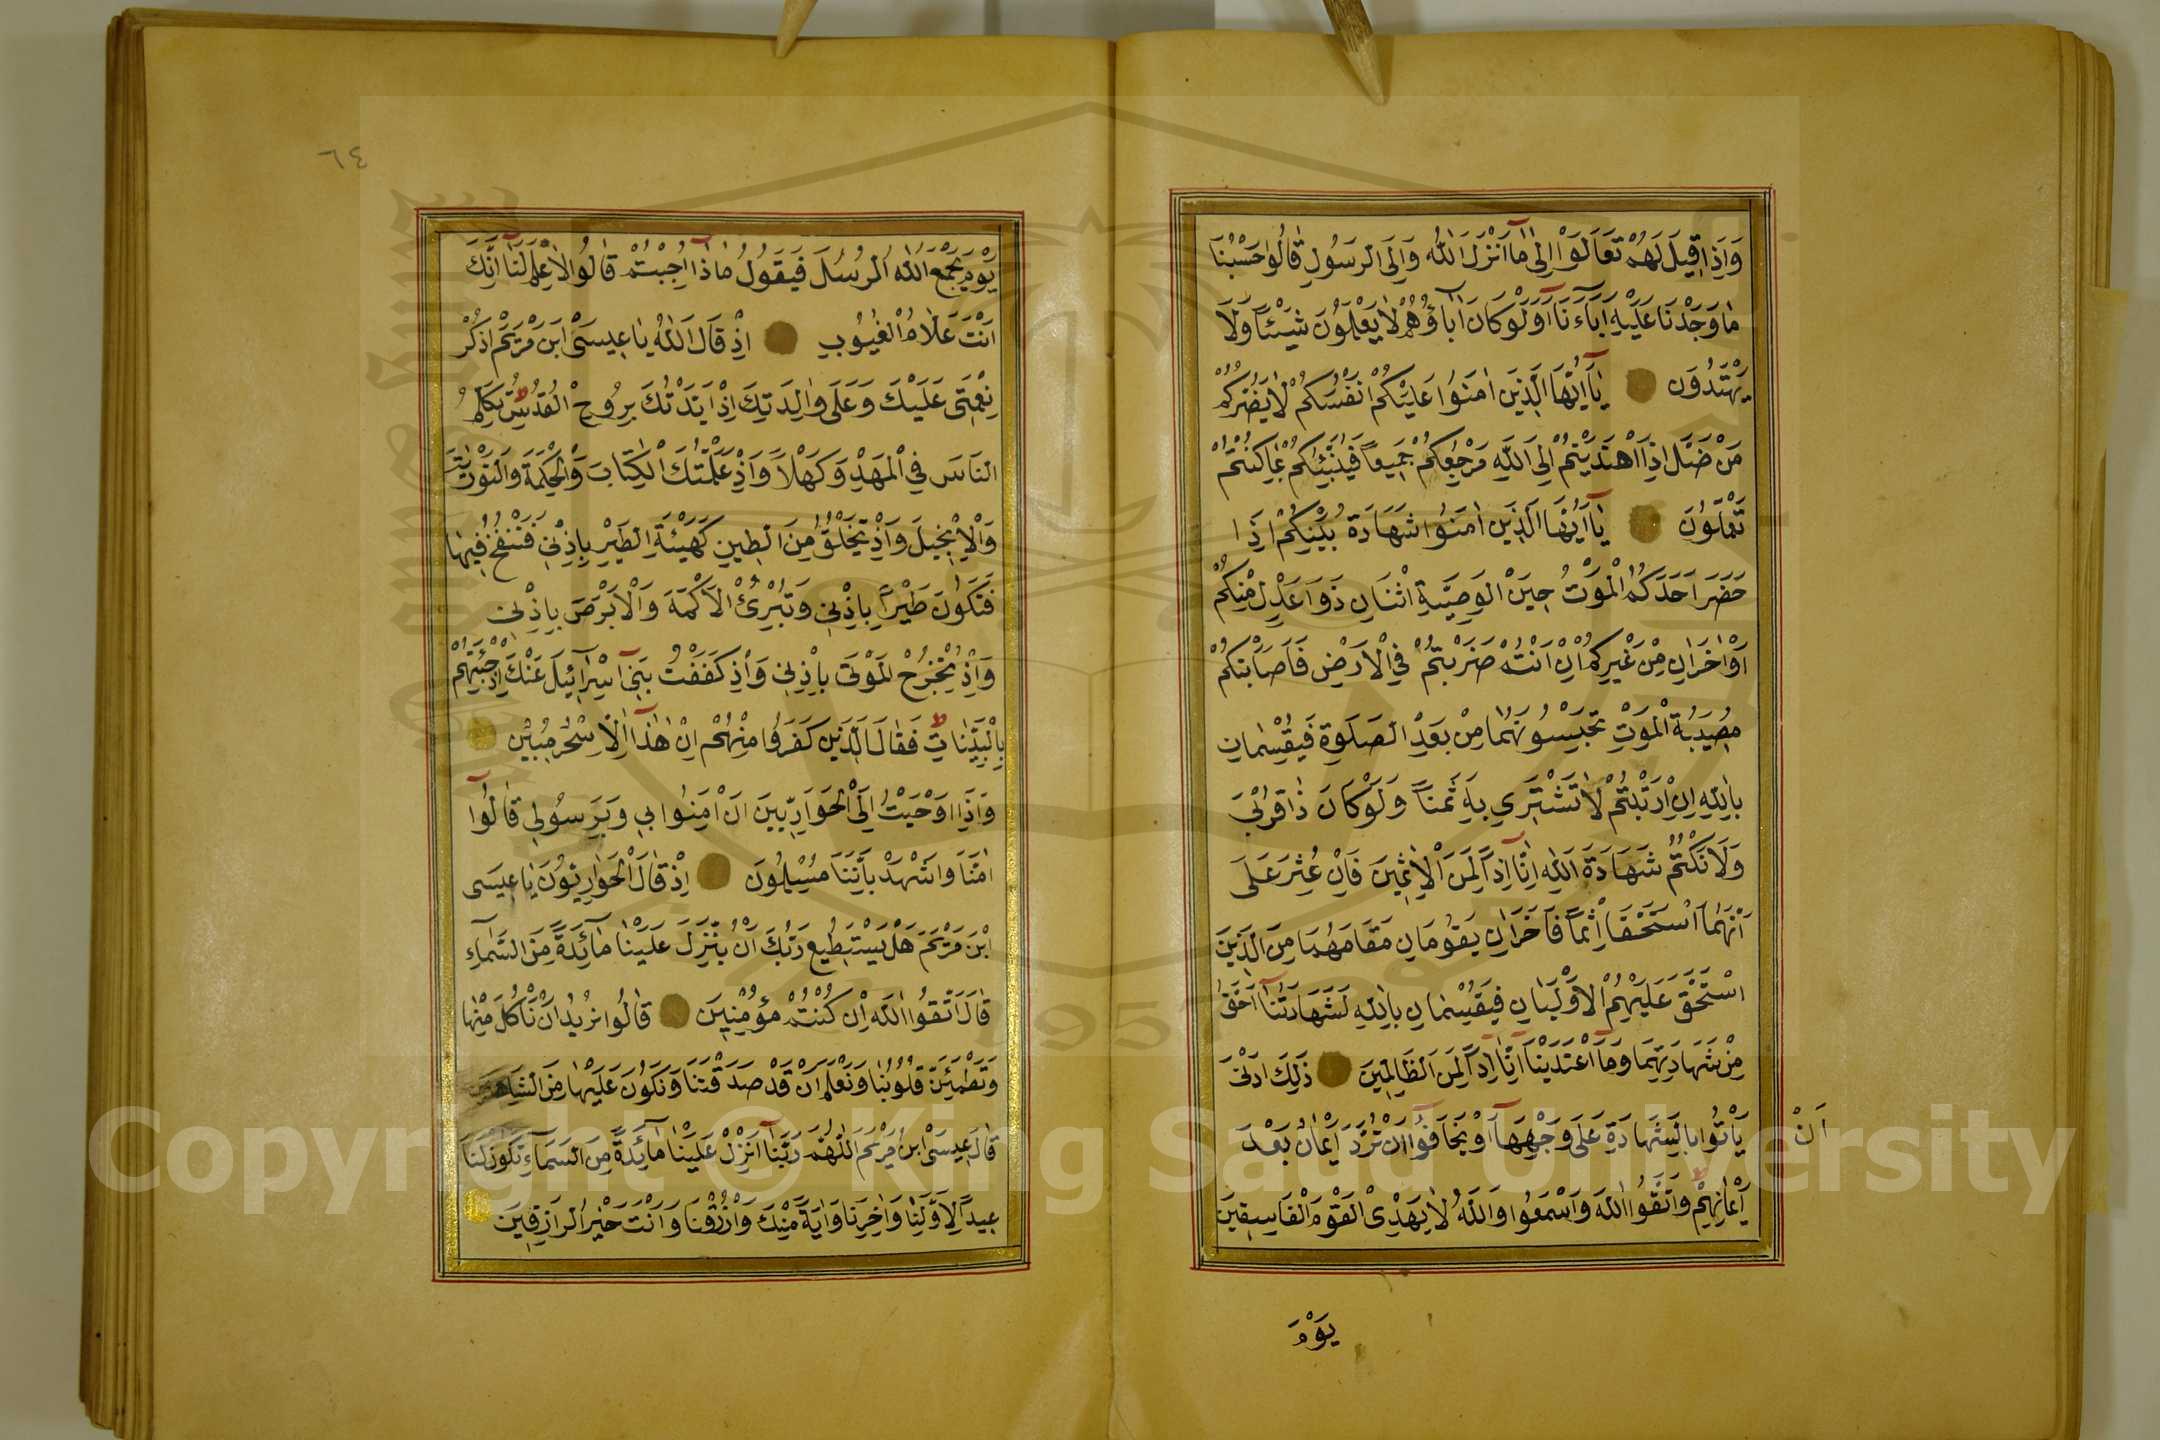 وَاِذَا قِيلَ لَهُمْ تَعَالَوْا اِلٰى مَٓا اَنْزَلَ اللّٰهُ وَاِلَى الرَّسُولِ قَالُوا حَسْبُنَا
مَا وَجَدْنَا عَلَيْهِ اٰبَٓاءَنَٓا اَوَلَوْ كَانَ اٰبَٓاؤُهُمْ لَا يَعْلَمُونَ شَيْئًا وَلَا
يَهْتَدُونَ يَٓا اَيُّهَا الَّذِينَ اٰمَنُوا عَلَيْكُمْ اَنْفُسَكُمْ لَا يَضُرُّكُمْ
مَنْ ضَلَّ اِذَا اهْتَدَيْتُمْ اِلَى اللّٰهِ مَرْجِعُكُمْ جَمِيعًا فَيُنَبِّئُكُمْ بِمَا كُنْتُمْ
تَعْمَلُونَ يَٓا اَيُّهَا الَّذِينَ اٰمَنُوا شَهَادَةُ بَيْنِكُمْ اِذَا
حَضَرَ اَحَدَكُمُ الْمَوْتُ حِينَ الْوَصِيَّةِ اثْنَانِ ذَوَا عَدْلٍ مِنْكُمْ
اَوْ اٰخَرَانِ مِنْ غَيْرِكُمْ اِنْ اَنْتُمْ ضَرَبْتُمْ فِي الْاَرْضِ فَاَصَابَتْكُمْ
مُصِيبَةُ الْمَوْتِ تَحْبِسُونَهُمَا مِنْ بَعْدِ الصَّلٰوةِ فَيُقْسِمَانِ
بِاللّٰهِ اِنِ ارْتَبْتُمْ لَا نَشْتَرِي بِهِ ثَمَنًا وَلَوْ كَانَ ذَا قُرْبٰى
وَلَا نَكْتُمُ شَهَادَةَ اللّٰهِ اِنَّٓا اِذًا لَمِنَ الْاٰثِمِينَ فَاِنْ عُثِرَ عَلٰٓى
اَنَّهُمَا اسْتَحَقَّٓا اِثْمًا فَاٰخَرَانِ يَقُومَانِ مَقَامَهُمَا مِنَ الَّذِينَ
اسْتَحَقَّ عَلَيْهِمُ الْاَوْلَيَانِ فَيُقْسِمَانِ بِاللّٰهِ لَشَهَادَتُنَٓا اَحَقُّ
مِنْ شَهَادَتِهِمَا وَمَا اعْتَدَيْنَٓا اِنَّٓا اِذًا لَمِنَ الظَّالِمِينَ ذٰلِكَ اَدْنٰٓى
اَنْ يَأْتُوا بِالشَّهَادَةِ عَلٰى وَجْهِهَٓا اَوْ يَخَافُٓوا اَنْ تُرَدَّ اَيْمَانٌ بَعْدَ
اَيْمَانِهِمْ وَاتَّقُوا اللّٰهَ وَاسْمَعُوا وَاللّٰهُ لَا يَهْدِي الْقَوْمَ الْفَاسِقِينَ
يَوْمَ
٦٤
يَوْمَ يَجْمَعُ اللّٰهُ الرُّسُلَ فَيَقُولُ مَاذَٓا اُجِبْتُمْ قَالُوا لَا عِلْمَ لَنَٓا اِنَّكَ
اَنْتَ عَلَّامُ الْغُيُوبِ اِذْ قَالَ اللّٰهُ يَا عِيسَى ابْنَ مَرْيَمَ اذْكُرْ
نِعْمَتِي عَلَيْكَ وَعَلٰى وَالِدَتِكَ اِذْ اَيَّدْتُكَ بِرُوحِ الْقُدُسِ تُكَلِّمُ
النَّاسَ فِي الْمَهْدِ وَكَهْلًا وَاِذْ عَلَّمْتُكَ الْكِتَابَ وَالْحِكْمَةَ وَالتَّوْرٰيةَ
وَالْاِنْجِيلَ وَاِذْ تَخْلُقُ مِنَ الطِّينِ كَهَيْئَةِ الطَّيْرِ بِاِذْنِي فَتَنْفُخُ فِيهَا
فَتَكُونُ طَيْرًا بِاِذْنِي وَتُبْرِئُ الْاَكْمَهَ وَالْاَبْرَصَ بِاِذْنِي
وَاِذْ تُخْرِجُ الْمَوْتٰى بِاِذْنِي وَاِذْ كَفَفْتُ بَنِٓي اِسْرَٓائِيلَ عَنْكَ اِذْ جِئْتَهُمْ
بِالْبَيِّنَاتِ فَقَالَ الَّذِينَ كَفَرُوا مِنْهُمْ اِنْ هٰذَٓا اِلَّا سِحْرٌ مُبِينٌ
وَاِذْ اَوْحَيْتُ اِلَى الْحَوَارِيِّينَ اَنْ اٰمِنُوا بِي وَبِرَسُولِي قَالُٓوا
اٰمَنَّا وَاشْهَدْ بِاَنَّنَا مُسْلِمُونَ اِذْ قَالَ الْحَوَارِيُّونَ يَا عِيسَى
ابْنَ مَرْيَمَ هَلْ يَسْتَطِيعُ رَبُّكَ اَنْ يُنَزِّلَ عَلَيْنَا مَٓائِدَةً مِنَ السَّمَٓاءِ
قَالَ اتَّقُوا اللّٰهَ اِنْ كُنْتُمْ مُؤْمِنِينَ قَالُوا نُرِيدُ اَنْ نَأْكُلَ مِنْهَا
وَتَطْمَئِنَّ قُلُوبُنَا وَنَعْلَمَ اَنْ قَدْ صَدَقْتَنَا وَنَكُونَ عَلَيْهَا مِنَ الشَّاهِدِينَ
قَالَ عِيسَى ابْنُ مَرْيَمَ اللّٰهُمَّ رَبَّنَٓا اَنْزِلْ عَلَيْنَا مَٓائِدَةً مِنَ السَّمَٓاءِ تَكُونُ لَنَا
عِيدًا لِاَوَّلِنَا وَاٰخِرِنَا وَاٰيَةً مِنْكَ وَارْزُقْنَا وَاَنْتَ خَيْرُ الرَّازِقِينَ
Copyright © King Saud University
1957